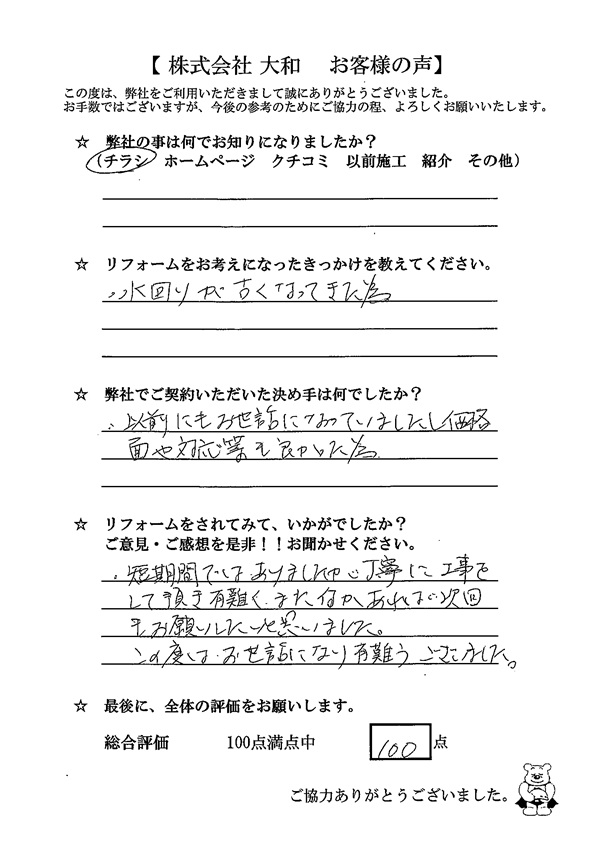 【 株式会社 大和　お客様の声】
この度は、弊社をご利用いただきまして誠にありがとうございました。
お手数ではございますが、今後の参考のためにご協力の程、よろしくお願いいたします。
☆ 弊社の事は何でお知りになりましたか？
（チラシ　ホームページ　クチコミ　以前施工　紹介　その他）
☆ リフォームをお考えになったきっかけを教えてください。
・水回りが古くなってきた為
☆ 弊社でご契約いただいた決め手は何でしたか？
・以前にもお世話になっていましたし価格
面や対応等も良かった為
☆ リフォームをされてみて、いかがでしたか？
ご意見・ご感想を是非！！お聞かせください。
・短期間ではありましたが丁寧に工事を
して頂き有難く、また何かあれば次回
もお願いしたいと思いました。
この度はお世話になり有難うございました。
☆ 最後に、全体の評価をお願いします。
総合評価　100点満点中　100 点
ご協力ありがとうございました。